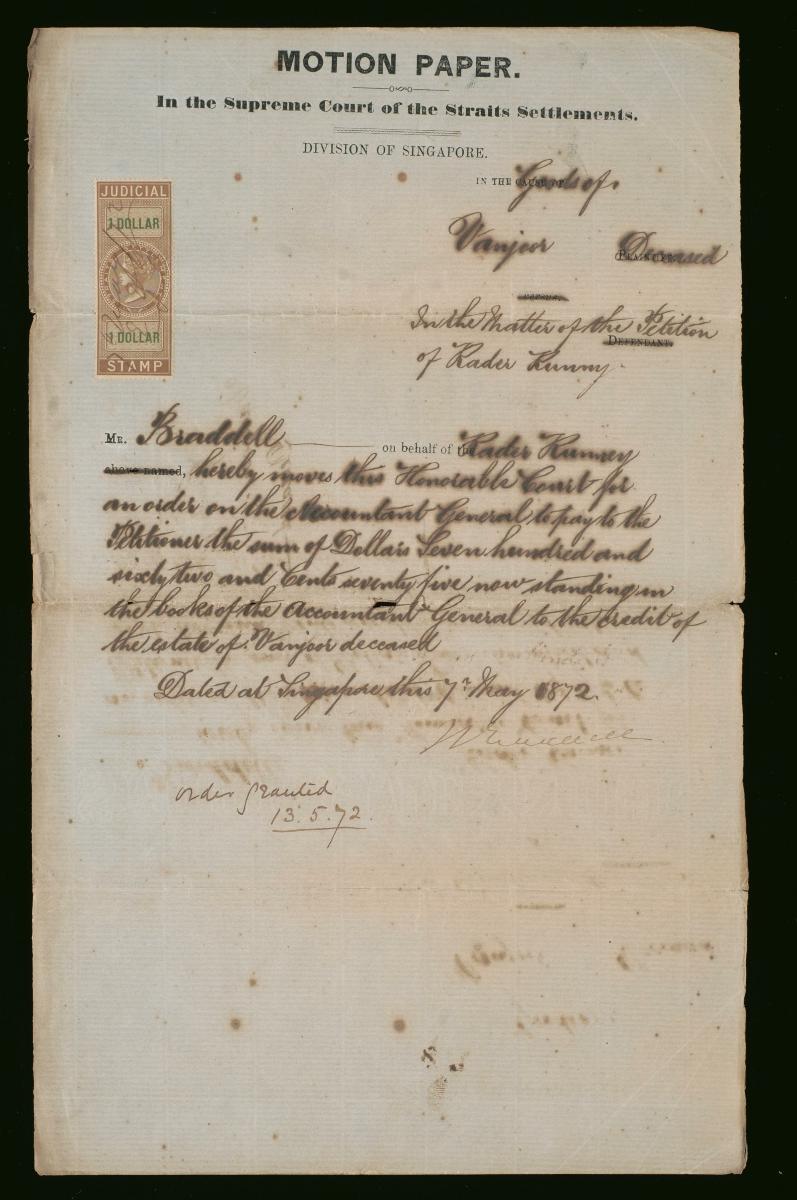 MOTION PAPER.
In the Supreme Court of the Straits Settlements.
DIVISION OF SINGAPORE.
IN THE CAUSE OF Goods of
JUDICIAL
1 DOLLAR
1 DOLLAR
STAMP
Vanjoor Deceased
PLAINTIFF
versus
In the Matter of the Petition
DEFENDANT.
of Kader Kunny.
MR. Braddell on behalf of the Kader Kunney
above named, hereby moves this Honorable Court for
an order on the Accountant General to pay to the
Petitioner the sum of Dollars Seven hundred and
sixty two and Cents seventy five now standing in
the books of the Accountant General to the credit of
the estate of Vanjoor deceased
Dated at Singapore this 7th May 1872.
order granted
13.5.72.